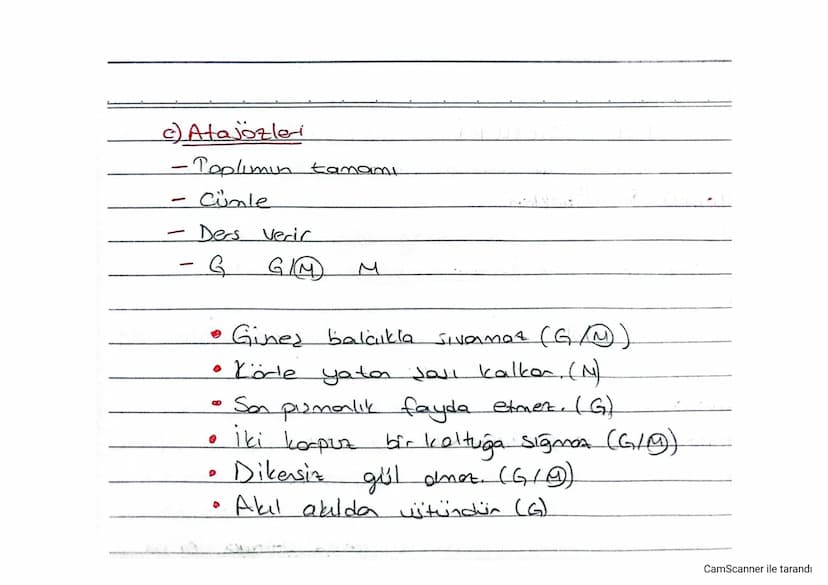 c) Atasözleri
- Toplumun tamamı
- Cümle
- Ders verir
- G G/M M
• Güneş balçıkla sıvanmaz (G/M)
• Körle yatan şaşı kalkar. (M)
• Son pişmanlık fayda etmez. (G)
• İki karpuz bir koltuğa sığmaz (G/M)
• Dikensiz gül olmaz. (G/M)
• Akıl akılda üstündür (G)
CamScanner ile tarandı